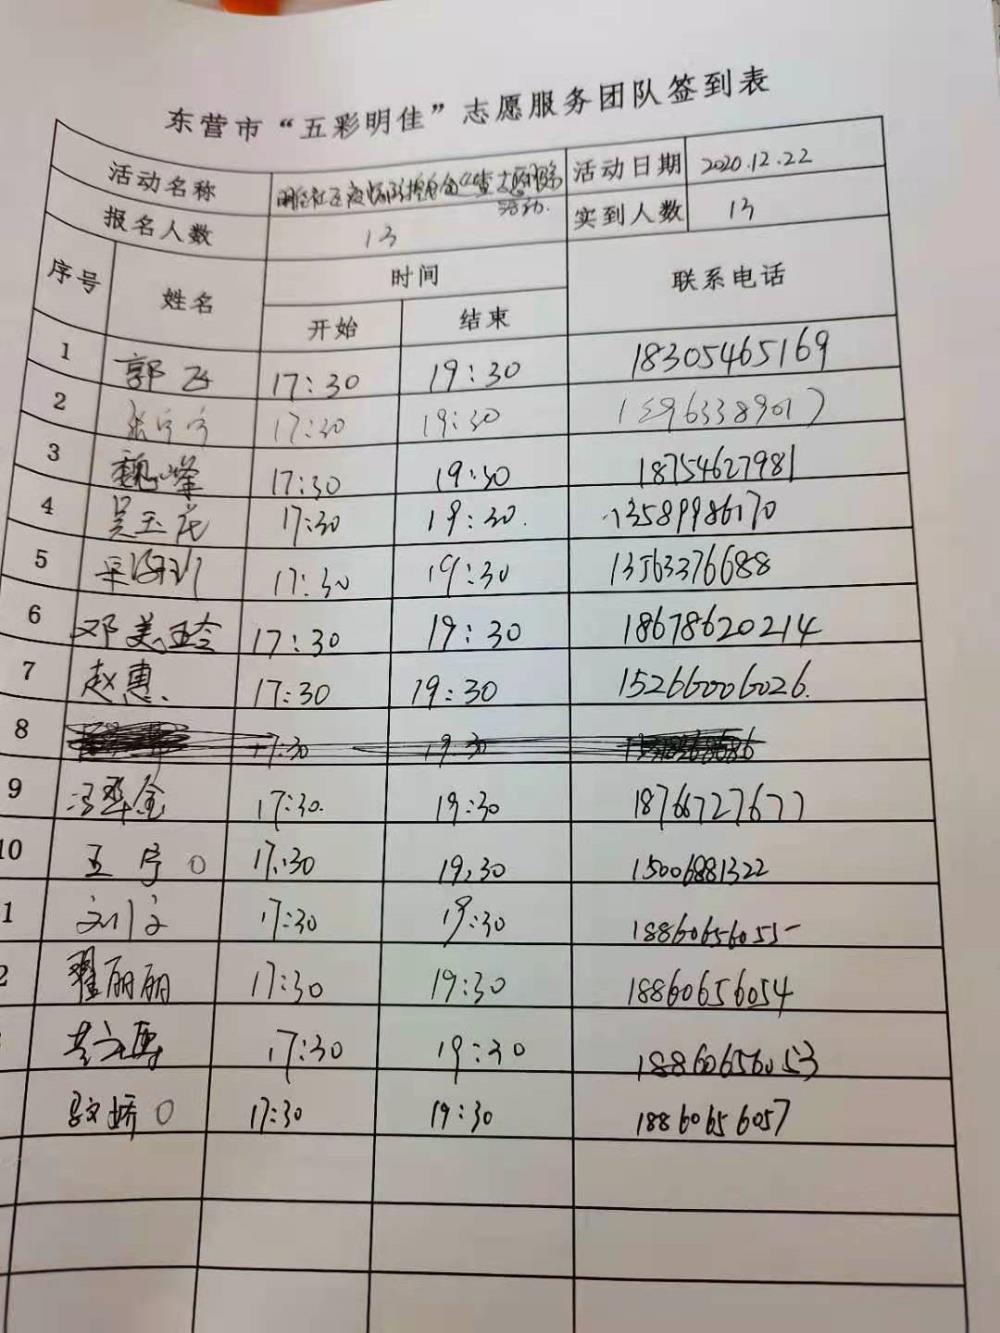 东营市“五彩明佳”志愿服务团队签到表
活动名称 活动日期 2020.12.22
活动.
报名人数 13 实到人数 13
序号 姓名 时间 联系电话
开始 结束
1 郭飞 17:30 19:30 18305465169
2 17:30 19:30 15963389017
3 魏峰 17:30 19:30 18754627981
4 吴玉花 17:30 19:30. 13589986170
5 17:30 19:30 13563376688
6 邓美玲 17:30 19:30 18678620214
7 赵惠. 17:30 19:30 15266006026.
8 17:30 19:30
9 冯翠金 17:30. 19:30 18766727677
10 王宁 17:30 19:30 15006881322
1 刘文 17:30 19:30 18860656055
2 翟丽丽 17:30 19:30 18860656054
17:30 19:30 18860656053
马文娇 17:30 19:30 18860656057